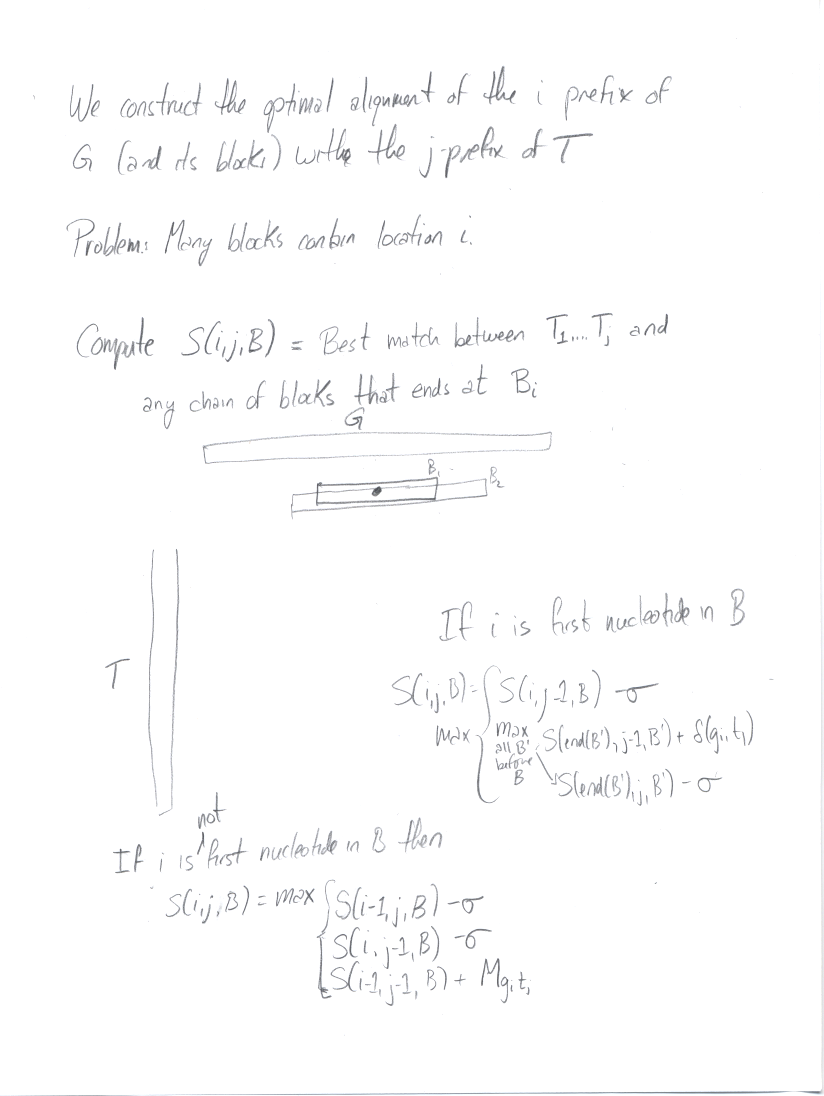 We construct the optimal alignment of the i prefix of
G (and its blocks) withe the j-prefix of T
Problem: Many blocks contain location i.
Compute S(i,j,B) = Best match between T1....Tj and
any chain of blocks that ends at Bi
G
B1
B2
T
If i is first nucleotide in B
S(i,j,B)= S(i,j-1,B) -σ
max max S(end(B'),j-1,B') + δ(gi,tj)
all B'
before
B S(end(B'),j,B') - σ
not
If i is ^ first nucleotide in B then
S(i,j,B) = max S(i-1,j,B) -σ
S(i,j-1,B) -σ
S(i-1,j-1,B) + Mgi,tj